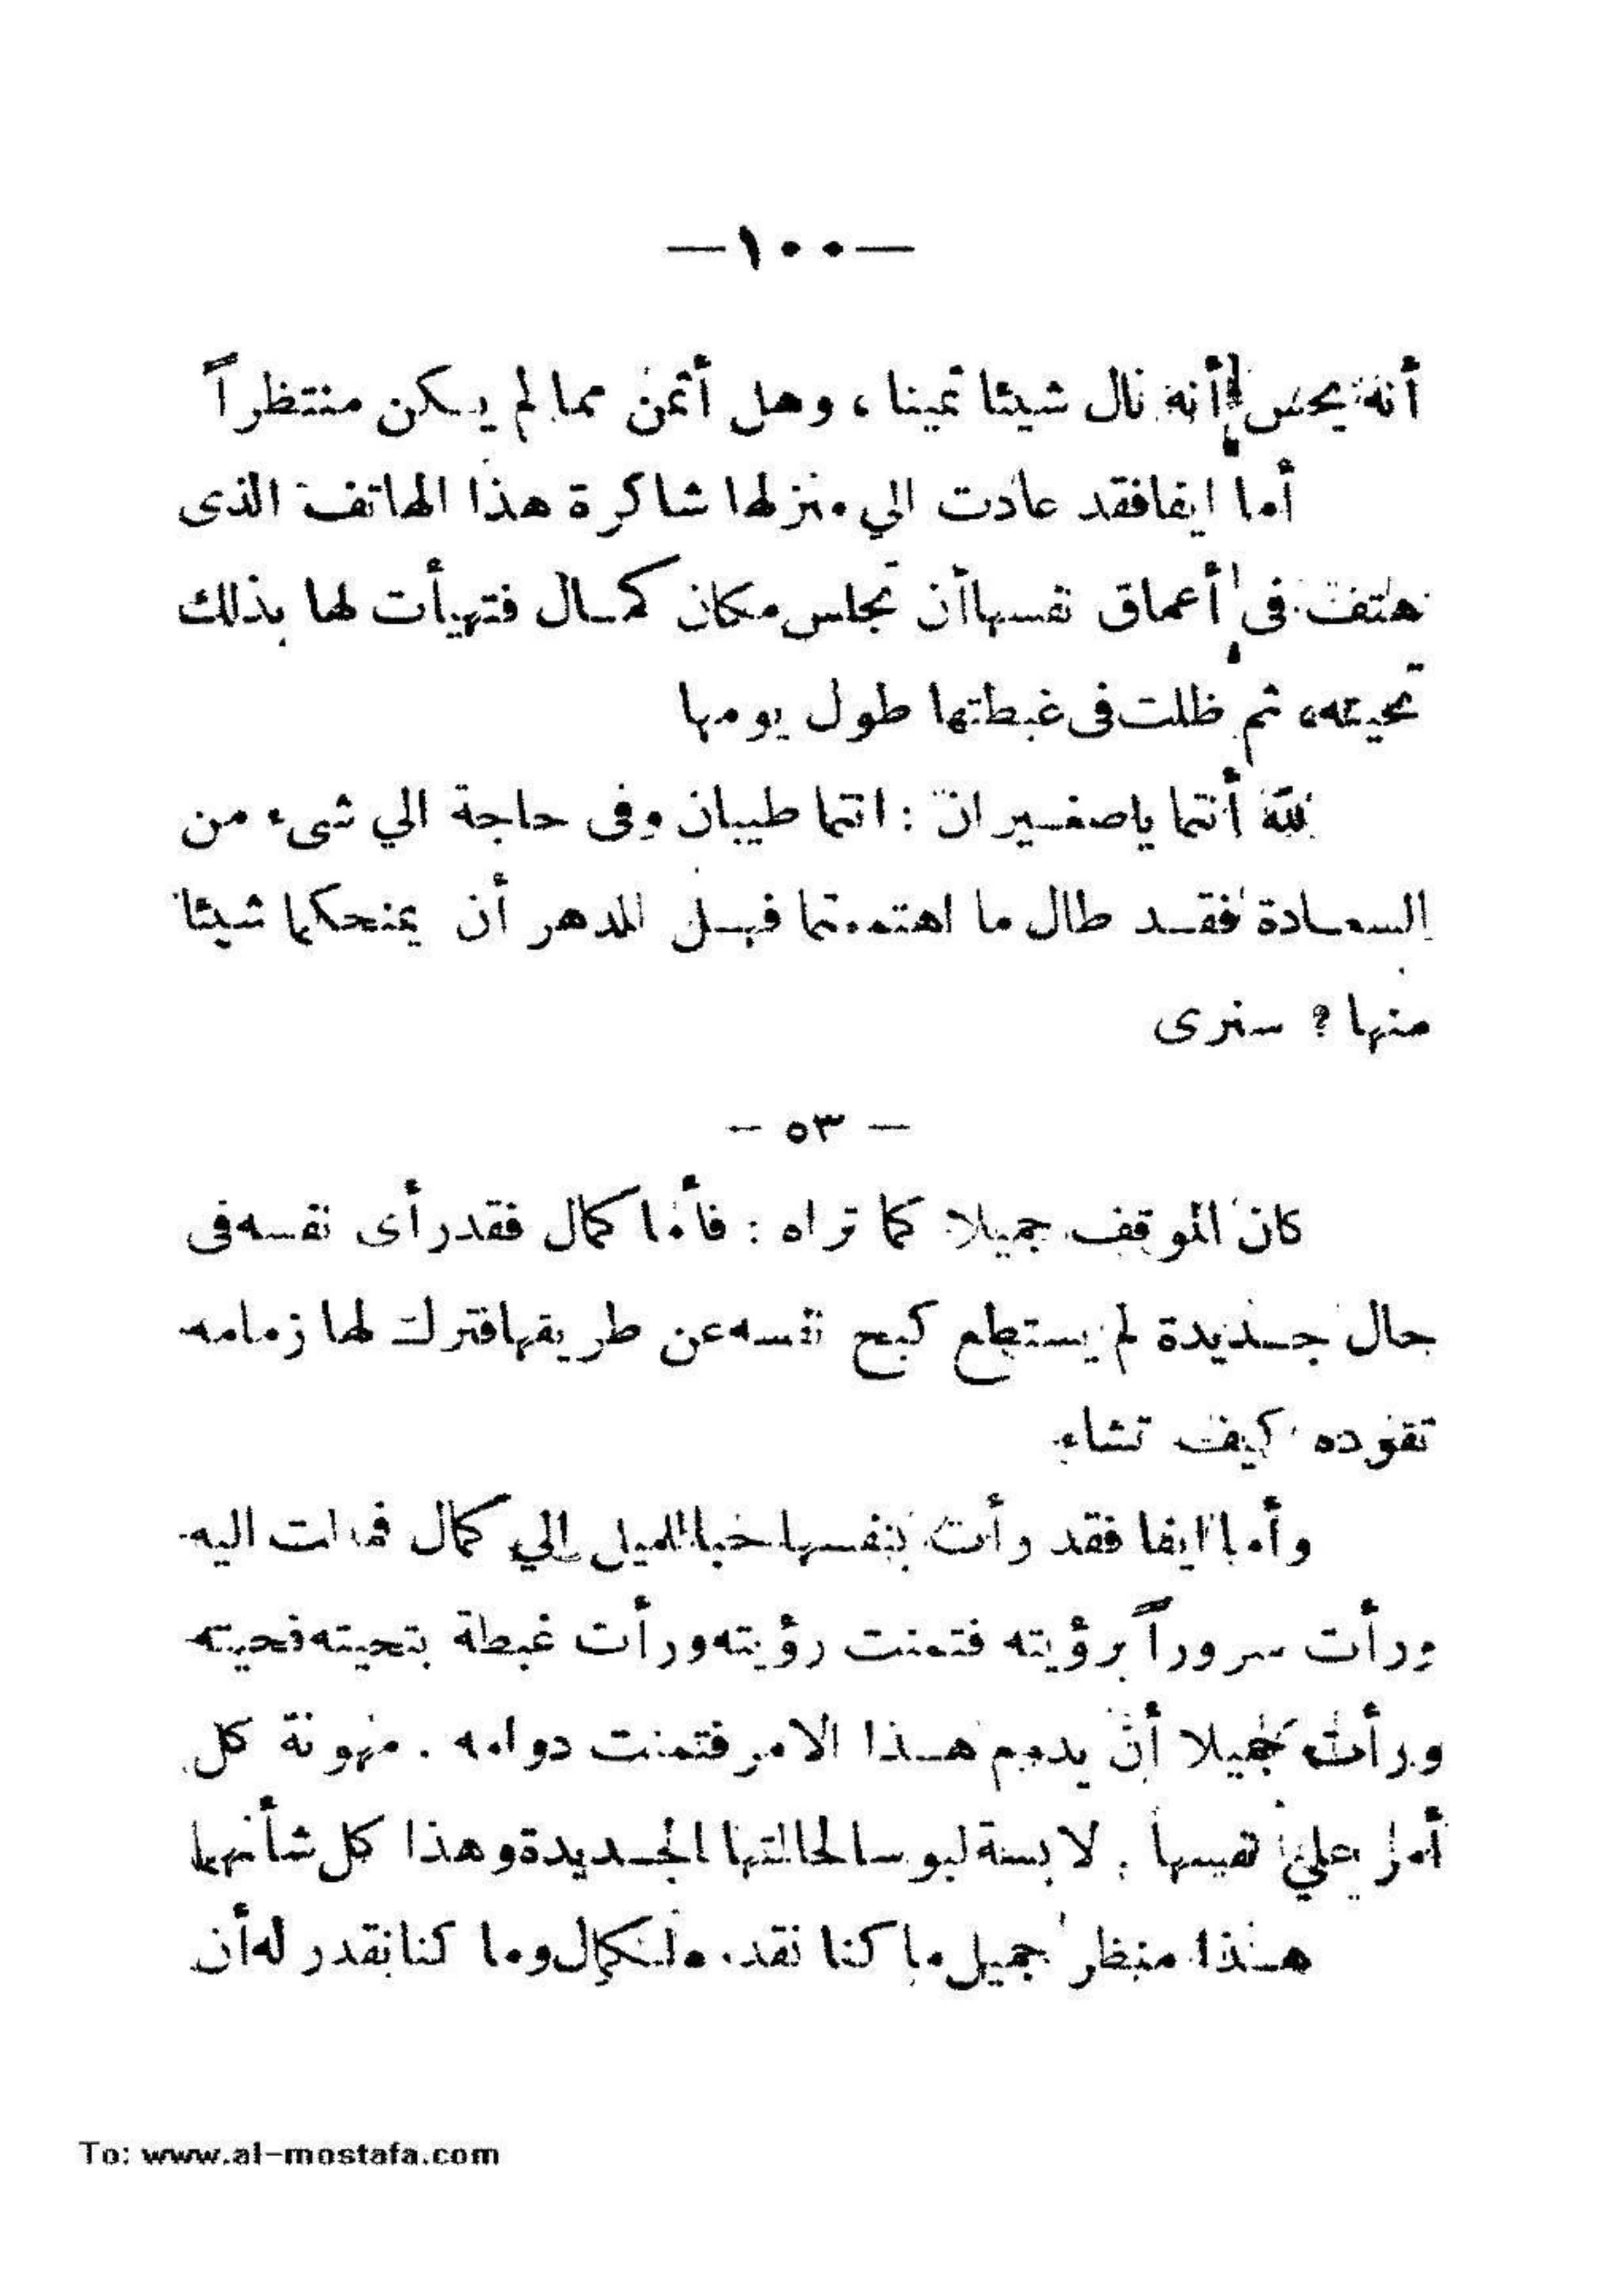 —١٠٠—
أنه يحس أنه نال شيئا ثمينا ، وهل أثمن مما لم يكن منتظراً
أما ايفا فقد عادت الي منزلها شاكرة هذا الهاتف الذى
هتف فى أعماق نفسها أن تجلس مكان كمال فتهيأت لها بذلك
تحيته، ثم ظلت فى غبطتها طول يومها
لله أنتما ياصغيران : انتما طيبان وفى حاجة الي شىء من
السعادة فقد طال ما اهتممتما فهل للدهر أن يمنحكما شيئا
منها ? سنرى
— ٥٣ —
كان الموقف جميلا كما تراه : فأما كمال فقد رأى نفسه فى
حال جديدة لم يستطع كبح نفسه عن طريقها فترك لها زمامه
تقوده كيف تشاء
وأما ايفا فقد رأت بنفسها حبا للميل الي كمال فمالت اليه
ورأت سروراً برؤيته فتمنت رؤيته ورأت غبطة بتحيته فحيته
ورأت جميلا أن يدوم هذا الامر فتمنت دوامه . مهونة كل
أمر علي نفسها . لابسة لبوسا لحالتها الجديدة وهذا كل شأنهما
هذا منظر جميل ما كنا نقدره لكمال وما كنا نقدر له أن
To: www.al-mostafa.com